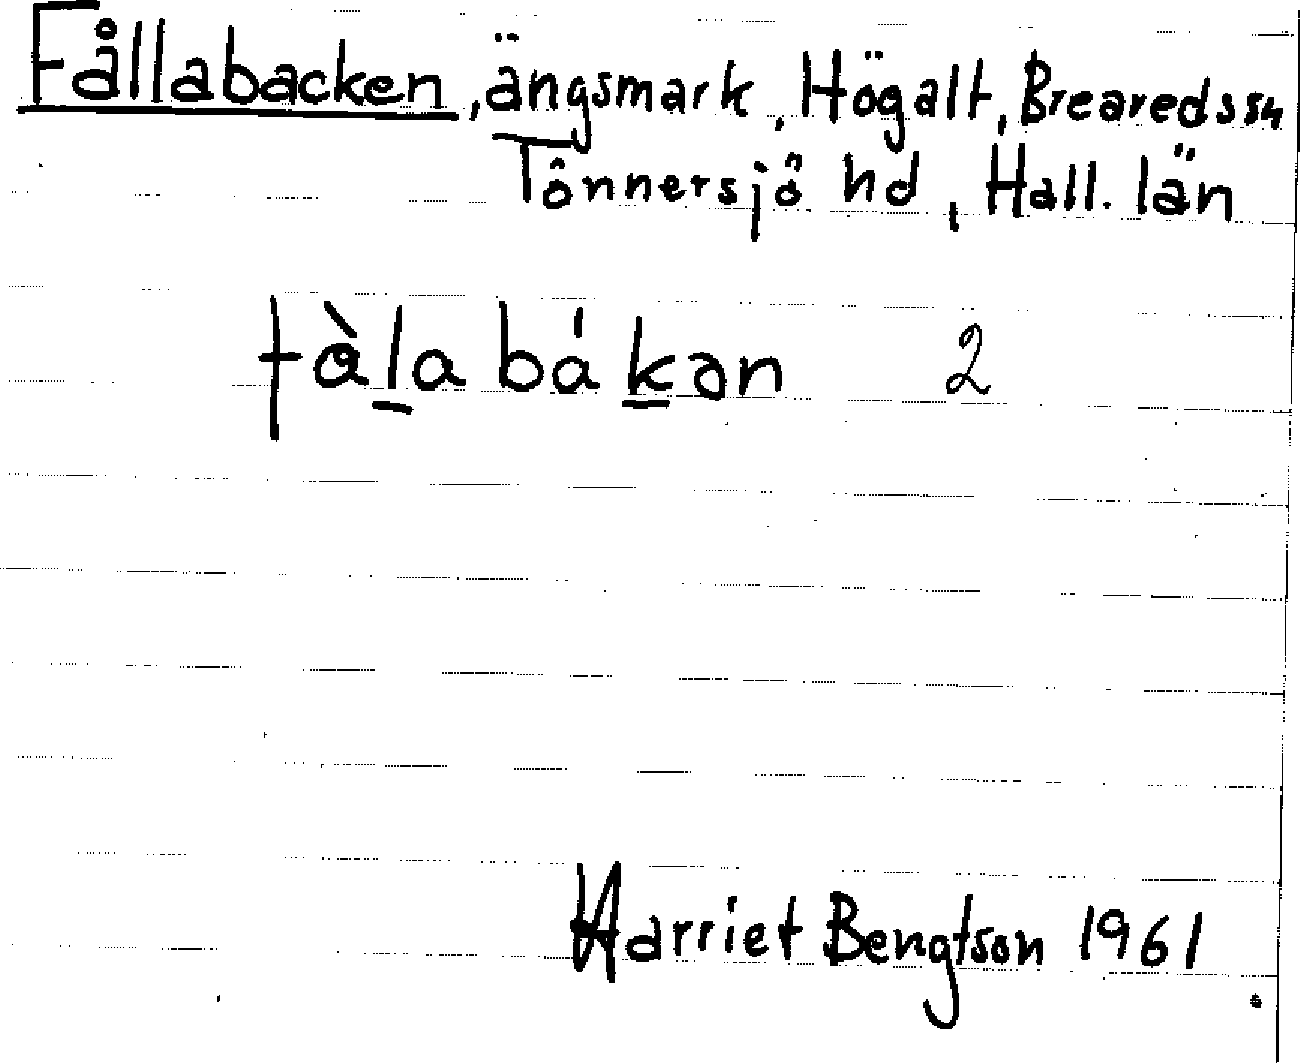 Fållabacken, ängsmark, Högalt, Breareds sn
Tönnersjö hd, Hall. län
fàla bákən 2
Harriet Bengtson 1961